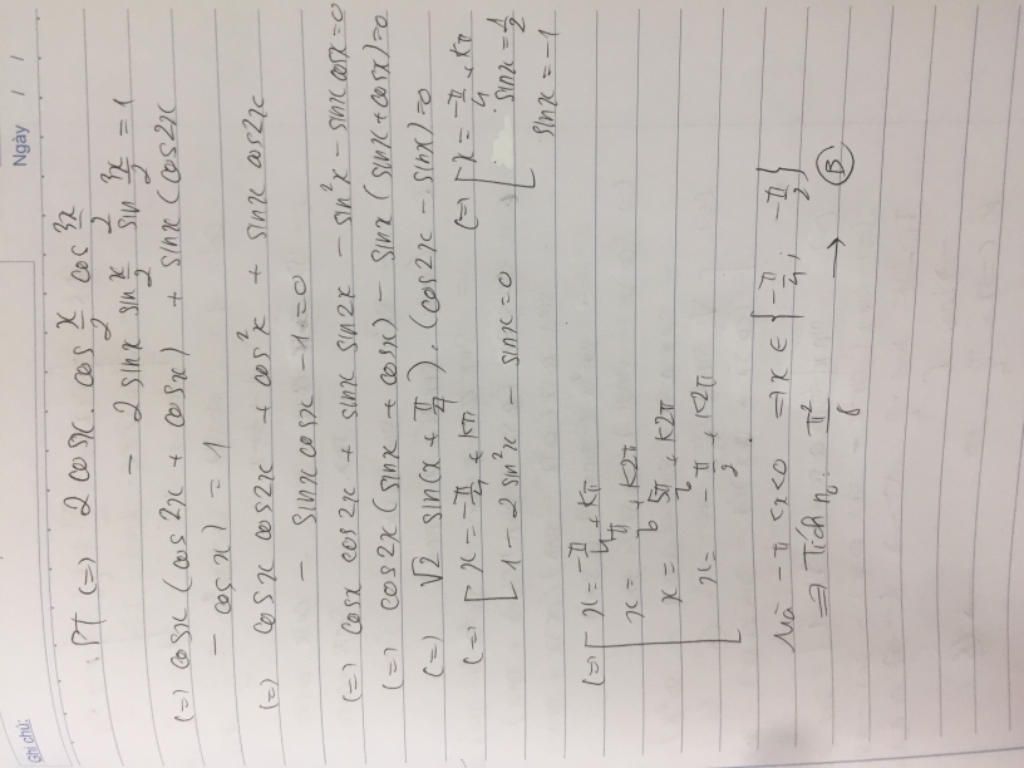 Ghi chú:
Ngày / /
PT (=) 2 cosx. cos x/2 cos 3x/2
- 2 sinx sin x/2 sin 3x/2 = 1
(=) cosx (cos 2x + cosx) + sinx (cos2x
- cosx) = 1
(=) cosx cos2x + cos²x + sinx cos2x
- sinx cosx - 1 = 0
(=) cosx cos 2x + sinx sin2x - sin²x - sinx cosx = 0
(=) cos2x (sinx + cosx) - sinx (sinx + cosx) = 0
(=) √2 sin(x + π/4). (cos2x - sinx) = 0
(=) [ x = -π/4 + kπ (=) [ x = -π/4 + kπ
1 - 2 sin²x - sinx = 0 sinx = 1/2
sinx = -1
(=) [ x = -π/4 + kπ
x = π/6 + k2π
x = 5π/6 + k2π
x = -π/2 + k2π
Mà -π ≤ x < 0 => x ∈ { -π/4; -π/2 }
=> Tích no = π²/8 → B